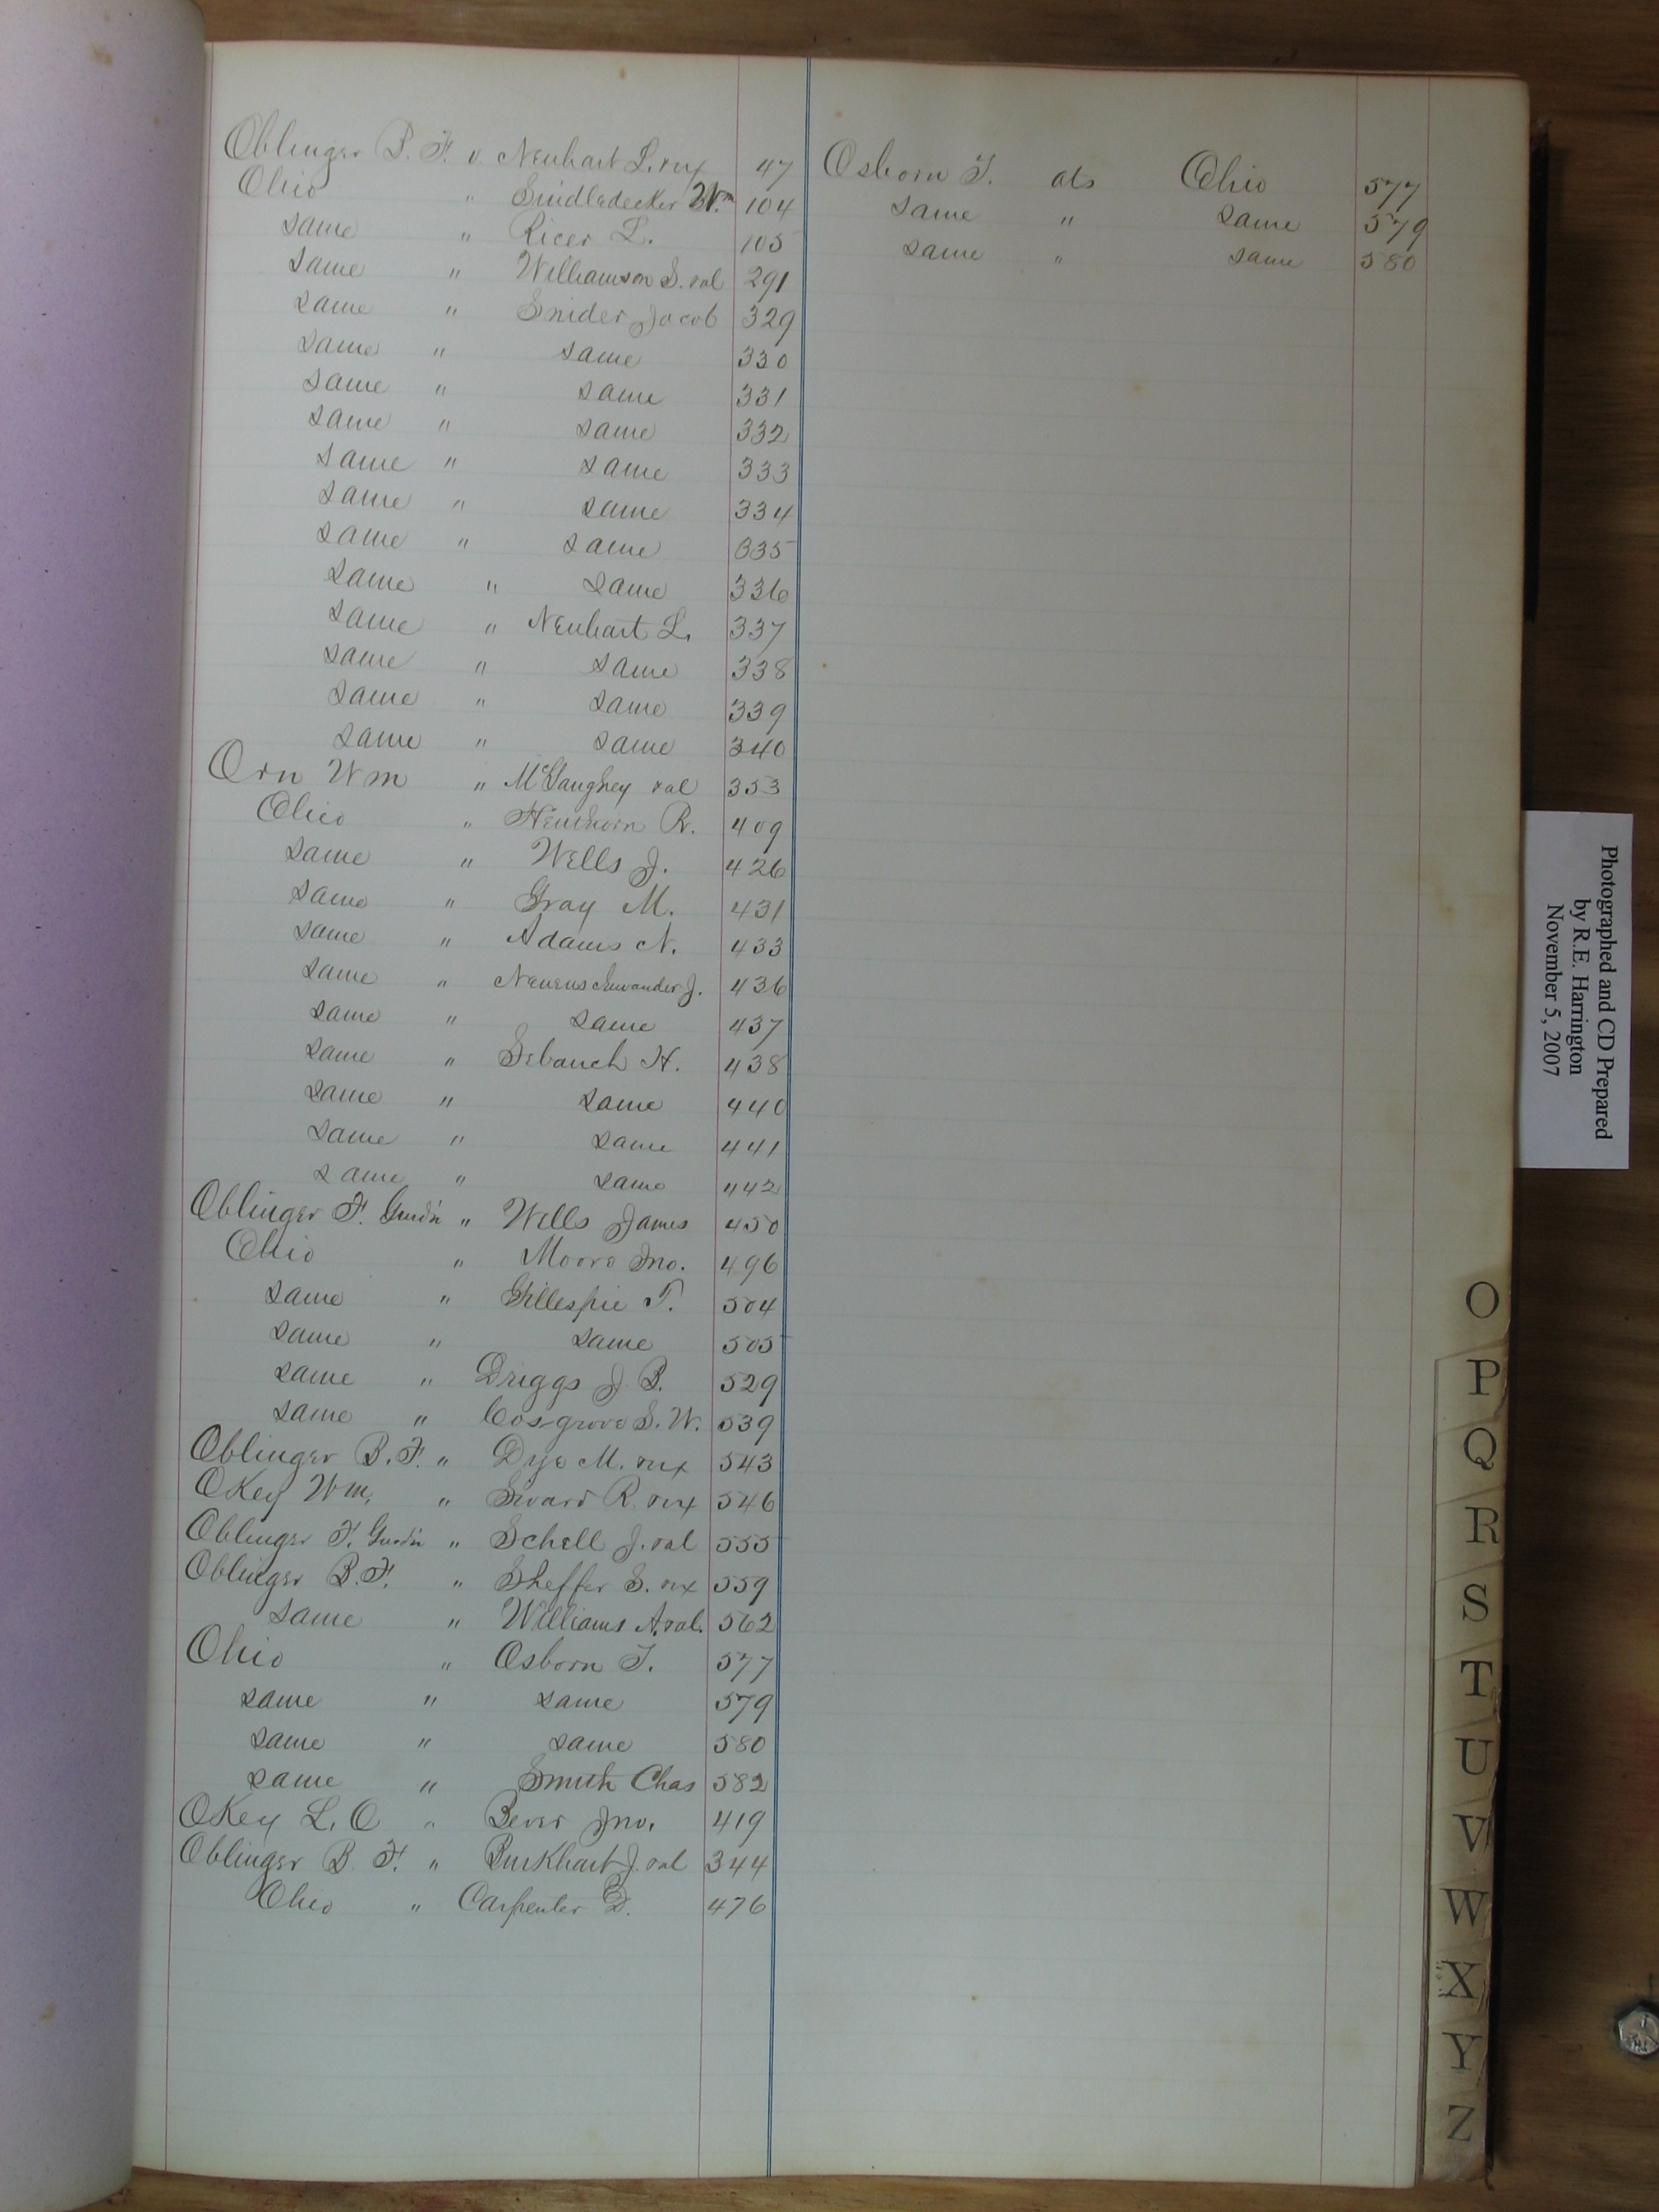 Oblinger B. F. v. Neuhart L. rux 47
Ohio " Sindledecker Wm 104
same " Ricer L. 105
same " Williamson S. val 291
same " Snider Jacob 329
same " same 330
same " same 331
same " same 332
same " same 333
same " same 334
same " same 335
same " same 336
same " Neuhart L. 337
same " same 338
same " same 339
same " same 340
Orn Wm " McGaughey val 353
Ohio " R. 409
same " Wells J. 426
same " Gray M. 431
same " Adams N. 433
same " J. 436
same " same 437
same " Sebauch H. 438
same " same 440
same " same 441
same " same 442
Oblinger F. Gurdn " Wells James 450
Ohio " Moore Jno. 496
same " Gillespie T. 504
same " same 505
same " Driggs J. B. 529
same " Cosgrove S. W. 539
Oblinger B. F. " Dye M. rux 543
OKey Wm, " R. rux 546
Oblinger F. Gurdn " Schell J. val 555
Oblinger B. F. " Sheffer S. rux 559
same " Williams A. val. 562
Ohio " Osborn T. 577
same " same 579
same " same 580
same " Smith Chas 582
OKey L. O " Bever Jno. 419
Oblinger B. F. " Burkhart J. val 344
Ohio " Carpenter D. 476
Osborn T. ats Ohio 577
same " same 579
same " same 580
Photographed and CD Prepared
by R.E. Harrington
November 5, 2007
O
P
Q
R
S
T
U
V
W
X
Y
Z